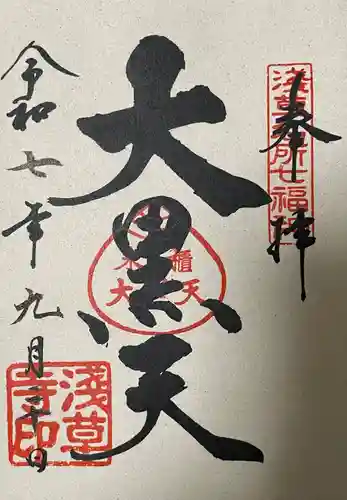 奉拝
浅草名所七福神
大黒天
米櫃
大天
令和七年九月二十日
浅草
寺印